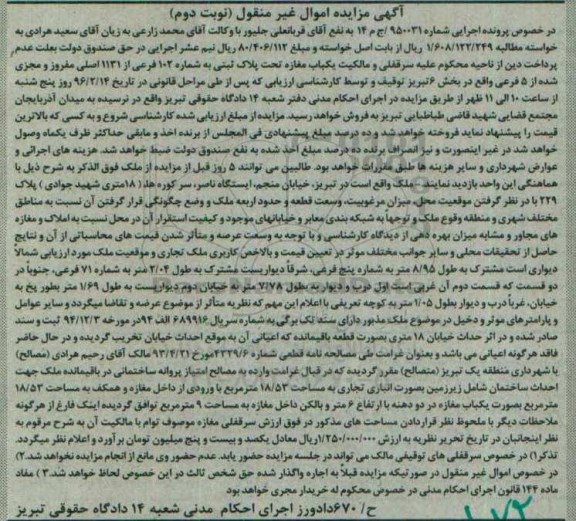 آگهی مزایده اموال غیر منقول (نوبت دوم)
در خصوص پرونده اجرایی شماره ۹۵۰۰۳۱ /ج م ۱۴ به نفع آقای قربانعلی جلیور با وکالت آقای محمد زارعی به زیان آقای سعید هرادی به
خواسته مطالبه ۱/۶۰۸/۱۲۲/۲۴۹ ریال از بابت اصل خواسته و مبلغ ۸۰/۴۰۶/۱۱۲ ریال نیم عشر اجرایی در حق صندوق دولت بعلت عدم
پرداخت دین از ناحیه محکوم علیه سرقفلی و مالکیت یکباب مغازه تحت پلاک ثبتی به شماره ۱۰۲ فرعی از ۱۱۳۱ اصلی مفروز و مجزی
شده از ۵ فرعی واقع در بخش ۶ تبریز توقیف و توسط کارشناسی ارزیابی که پس از طی مراحل قانونی در تاریخ ۹۶/۲/۱۴ روز پنج شنبه
از ساعت ۱۰ الی ۱۱ ظهر از طریق مزایده در اجرای احکام مدنی دفتر شعبه ۱۴ دادگاه حقوقی تبریز واقع در نرسیده به میدان آذربایجان
مجتمع قضایی شهید قاضی طباطبایی تبریز به فروش خواهد رسید. مزایده از مبلغ ارزیابی شده کارشناسی شروع و به کسی که بالاترین
قیمت را پیشنهاد نماید فروخته خواهد شد و ده درصد مبلغ پیشنهادی فی المجلس از برنده اخذ و مابقی حداکثر ظرف یکماه وصول
خواهد شد. در غیر اینصورت و نیز انصراف برنده ده درصد مبلغ اخذ شده به نفع صندوق دولت ضبط خواهد شد. هزینه های اجرائی و
عوارض شهرداری و سایر هزینه ها طبق مقررات خواهد بود. طالبین می توانند ۵ روز قبل از مزایده از ملک فوق الذکر به شرح ذیل با
هماهنگی این واحد بازدید نمایند. (ملک واقع است در تبریز، خیابان منجم، ایستگاه ناصر، سر کوره ها، (۱۸متری شهید جوادی) پلاک
۲۲۹ با در نظر گرفتن موقعیت محل، میزان مرغوبیت، وسعت قطعه و حدود اربعه ملک و وضع چگونگی قرار گرفتن آن نسبت به مناطق
مختلف شهری و منطقه وقوع ملک و توجهاً به شبکه بندی معابر و خیابانهای موجود و کیفیت استقرار آن در محل نسبت به املاک و مغازه
های مجاور و مشابه میزان بهره دهی از دیدگاه کارشناسی و با توجه به وسعت عرصه و متأثر شدن قیمت های محاسباتی از آن و نتایج
حاصل از تحقیقات محلی و سایر جوانب مختلف موثر در تعیین قیمت و بالاخص کاربری ملک تجاری و موقعیت ملک مورد ارزیابی شمالاً
دیواری است مشترک به طول ۸/۹۵ متر به شماره پنج فرعی، شرقاً دیواریست مشترک به طول ۲/۰۴ متر به شماره ۷۱ فرعی، جنوباً در
دو قسمت که قسمت دوم آن غربی است اول درب و دیوار به بطول ۷/۷۸ متر به خیابان دوم دیواریست به طول ۱/۶۹ متر بطور پخ به
خیابان، غرباً درب و دیوار بطول ۱/۰۵ متر به کوچه تعریفی با اعلام این مهم که نظریه متأثر از موضوع عرضه و تقاضا میگردد و سایر عوامل
و پارامترهای موثر و دخیل در موضوع ملک مذبور دارای سند تک برگی به شماره سریال ۶۸۹۹۱۶ الف ۹۴ در مورخه ۹۴/۱۲/۳ ثبت و سند
صادر شده و در اثر حداث خیابان ۱۸ متری بصورت قطعه باقیمانده که اعیانی آن به موقع احداث خیابان تخریب گردیده و در حال حاضر
فاقد هر گونه اعیانی می باشد و بعنوان غرامت طی مصالحه نامه قطعی شماره ۴۳۲۹/۶ مورخ ۹۳/۴/۲۱ مالک آقای رحیم هرادی (مصالح)
با شهرداری منطقه یک تبریز (متصالح) مقرر گردیده که در قبال غرامت وارده به مصالح امتیاز پروانه ساختمانی در باقیمانده ملک جهت
احداث ساختمان شامل زیرزمین بصورت انباری تجاری به مساحت ۱۸/۵۳ مترمربع با ورودی از داخل مغازه و همکف به مساحت ۱۸/۵۳
مترمربع بصورت یکباب مغازه در دو دهنه با ارتفاع ۶ متر و بالکن داخل مغازه به مساحت ۹ مترمربع توافق گردیده اینک فارغ از هرگونه
ملاحظات دیگر با ملحوظ نظر قراردادن مساحت های مذکور در فوق ارزش سرقفلی مغازه موصوف توام با مالکیت آن به شرح مرقوم به
نظر اینجانبان در تاریخ تحریر نظریه به ارزش ۱/۲۵۰/۰۰۰/۰۰۰ریال معادل یکصد و بیست و پنج میلیون تومان برآورد و اعلام نظر میگردد.
تذکر۱) در خصوص سرقفلی های توقیفی مالک می تواند در جلسه مزایده حضور یابد. عدم حضور وی مانع از انجام مزایده نخواهد شد.۲)
در خصوص اموال غیر منقول در صورتیکه مزایده قبلاً به اجاره واگذار شده حق شخص ثالث در این خصوص لحاظ خواهد شد.۳) مفاد
ماده ۱۴۴ قانون اجرای احکام مدنی در خصوص محکوم له خریدار مجری خواهد بود
ح/ ۶۷۰ دادورز اجرای احکام مدنی شعبه ۱۴ دادگاه حقوقی تبریز